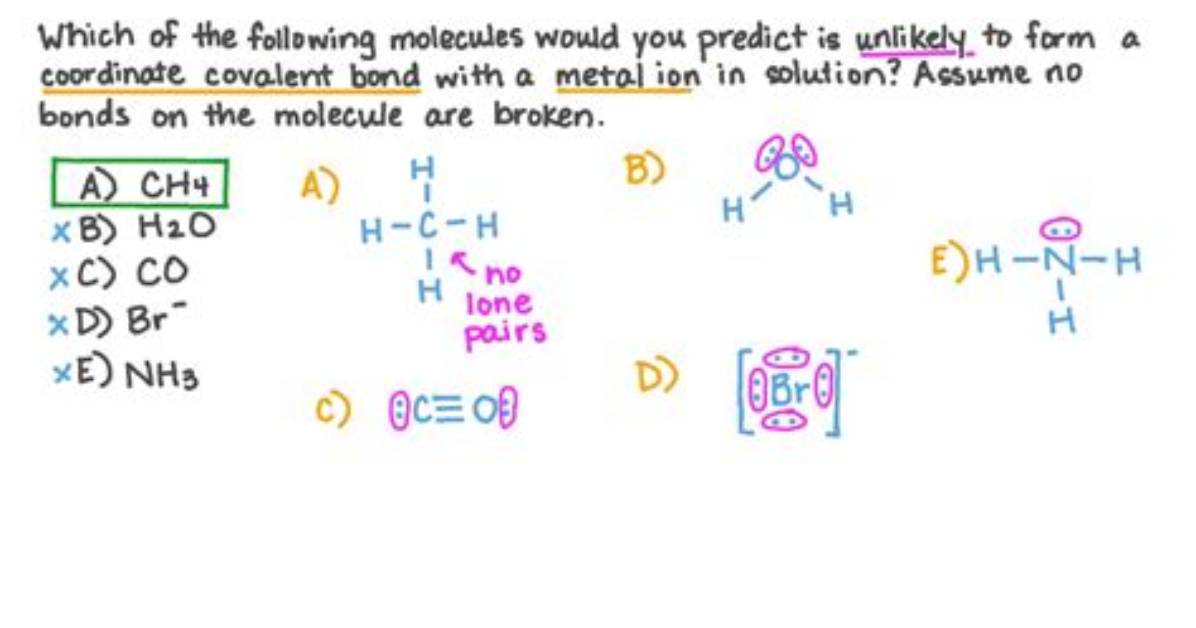 Which of the following molecules would you predict is unlikely to form a
coordinate covalent bond with a metal ion in solution? Assume no
bonds on the molecule are broken.
A) CH4
x B) H2O
x C) CO
x D) Br⁻
x E) NH3
A)
H
H-C-H
H
no
lone
pairs
B)
O
H H
C) :C≡O:
D) [:Br:]⁻
E) H-N-H
H